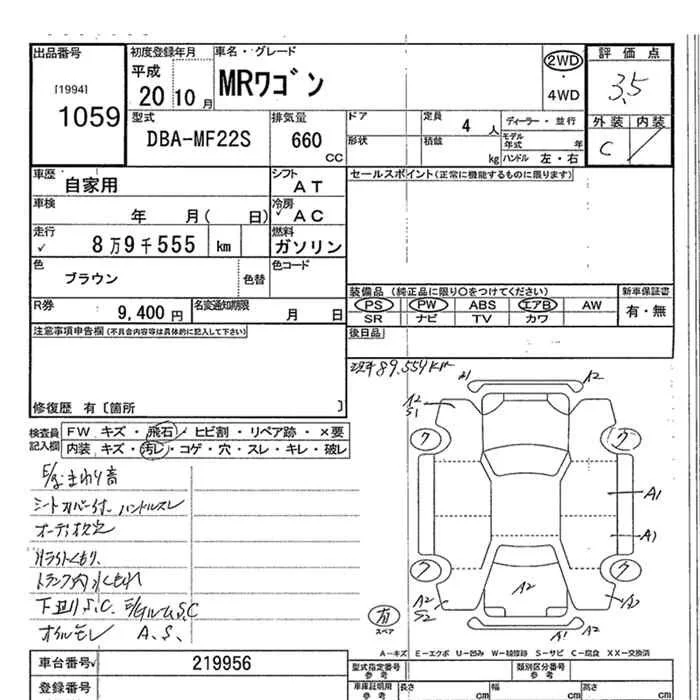 出品番号
[1994]
1059
初度登録年月
平成
20 10 月
車名・グレード
MRワゴン
2WD
・
4WD
評価点
3.5
外装 内装
C
型式
DBA-MF22S
排気量
660
cc
ドア
形状
定員
4 人
積載
kg
ディーラー・並行
モデル年式 年
ハンドル 左・右
車歴
自家用
シフト
AT
セールスポイント(正常に機能するものに限ります)
車検
年 月( 日)
冷房
AC
走行
8万9千555 km
燃料
ガソリン
色
ブラウン
色替
色コード
装備品 (純正品に限り○をつけてください)
新車保証書
PS PW ABS エアB AW
SR ナビ TV カワ
有・無
R券
9,400 円
名変通知期限
月 日
後日品
注意事項申告欄(不具合内容等は具体的に記入して下さい)
修復歴 有〔箇所 〕
現車89,554km
検査員
記入欄
FW キズ・飛石・ヒビ割・リペア跡・×要
内装 キズ・汚レ・コゲ・穴・スレ・キレ・破レ
E/gまわり音
シートカバー付、ハンドルスレ
オーディオ欠
Hライトくもり
トランク内水もれ
下廻りS.C. E/gルームS.C
オイルモレ A.S.
A1
A2
A2
S1
ワ
ワ
A1
A1
ワ
ワ
A2
A2
S2
A2
A1
A2
有
スペア
A−キズ E−エクボ U−凹み W−補修跡 S−サビ C−腐食 XX−交換済
車台番号
219956
登録番号
型式指定番号
参考
類別区分番号
参考
車庫証明用
参考
長さ cm
幅 cm
高さ cm